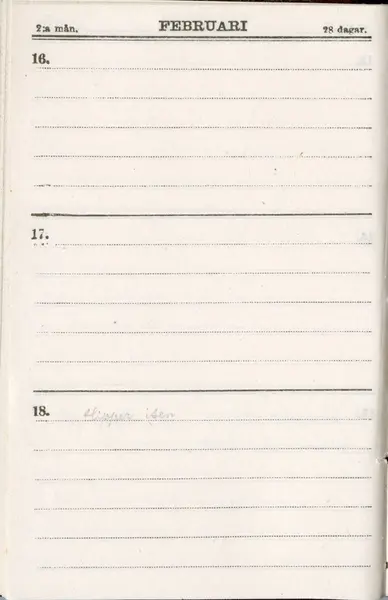 2:a mån. FEBRUARI 28 dagar.
16.
17.
18.